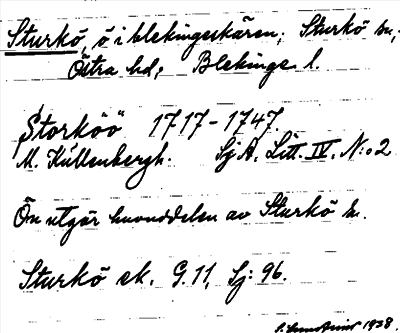 Sturkö, ö i blekingeskären; Sturkö sn,
Östra hd; Blekinge l.
Storköö 1717-1747.
M. Kullenbergh. Sj A. Litt. IV. N:o 2
Ön utgör huvuddelen av Sturkö s.
Sturkö sk. G. 11, Sj: 96.
1938.